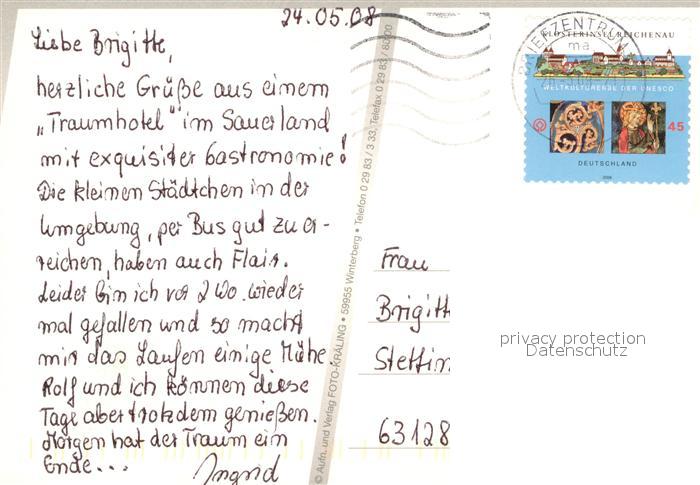 24.05.08
Liebe Brigitte,
herzliche Grüße aus einem
„Traumhotel" im Sauerland
mit exquisiter Gastronomie!
Die kleinen Städtchen in der
Umgebung, per Bus gut zu er-
reichen, haben auch Flair.
Leider bin ich vor 2 Wo. wieder
mal gefallen und so macht
mir das Laufen einige Mühe.
Rolf und ich können diese
Tage aber trotzdem genießen.
Morgen hat der Traum ein
Ende...
Ingrid
© Aufn. und Verlag FOTO-KRALING • 59955 Winterberg • Telefon 0 29 83 / 3 33, Telefax 0 29 83 / 80 00
BRIEFZENTRUM
ma
KLOSTERINSEL REICHENAU
WELTKULTURERBE DER UNESCO
45
DEUTSCHLAND
2008
Frau
Brigitt
Stettin
63128
privacy protection
Datenschutz